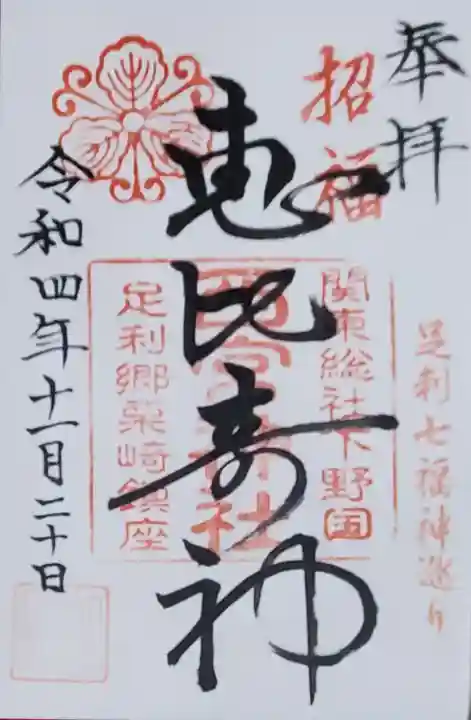 奉拝
招福
足利七福神巡り
関東総社下野国
西宮神社
足利郷栗崎鎮座
恵比寿神
令和四年十一月二十日